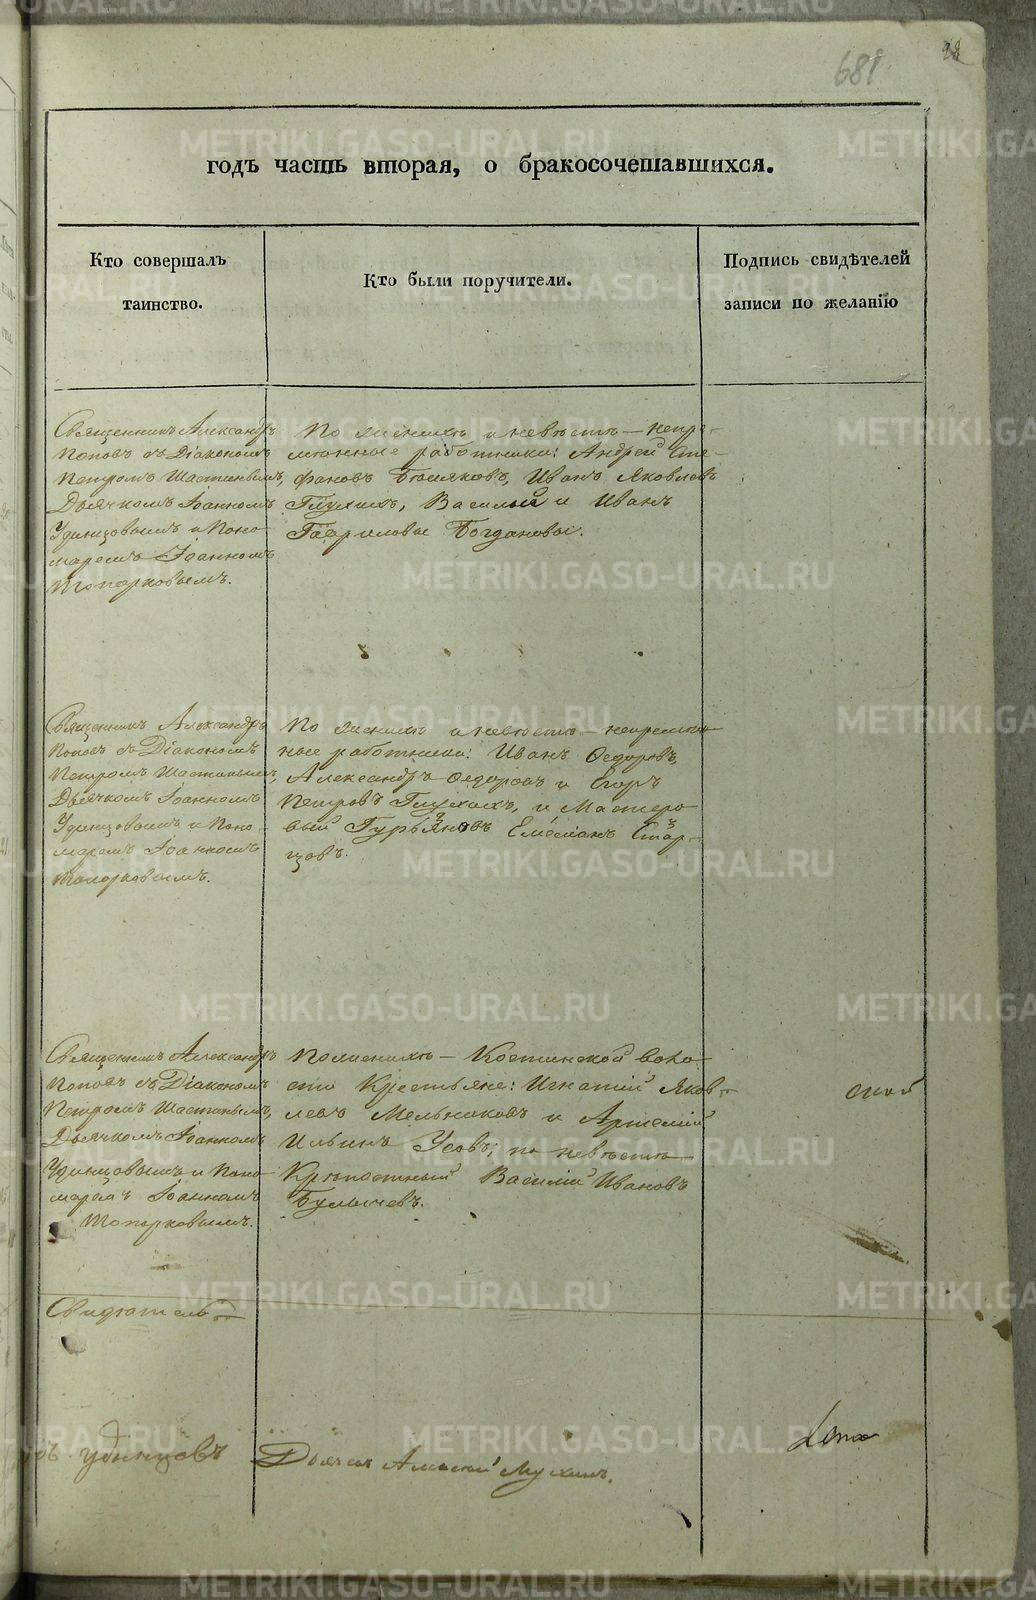 681
годъ часть вторая, о бракосочетавшихся.
Кто совершалъ
таинство.
Кто были поручители.
Подпись свидѣтелей
записи по желанію
Священникъ Александръ
Поповъ съ Діакономъ
Петромъ
Дьячкомъ Іоанномъ
Удинцовымъ и Поно-
маремъ Іоанномъ
Топорковымъ.
По женихѣ и невѣстѣ – непре-
мѣнные работники: Андрей Сте-
фановъ Иванъ Яковлевъ
Глухихъ, Василий и Иванъ
Гавриловы Богдановы.
Священникъ Александръ
Поповъ съ Діакономъ
Петромъ
Дьячкомъ Іоанномъ
Удинцовымъ и Поно-
маремъ Іоанномъ
Топорковымъ.
По женихѣ и невѣстѣ – непремѣн-
ные работники: Иванъ Ѳедоровъ,
Александръ Ѳедоровъ и Егоръ
Петровъ Глухихъ, и Мастеро-
вый Гурьяновъ Емельянъ Стар-
цовъ.
Священникъ Александръ
Поповъ съ Діакономъ
Петромъ
Дьячкомъ Іоанномъ
Удинцовымъ и Поно-
маремъ Іоанномъ
Топорковымъ.
По женихѣ – Костинской воло-
сти Крестьяне: Игнатій Яков-
левъ Мельниковъ и Артемій
Ильинъ Усовъ; по невѣстѣ –
Крѣпостный Василій Ивановъ
Булычевъ.
Свидѣтель
Удинцовъ
Дьячекъ Алексий Мухинъ.
METRIKI.GASO-URAL.RU